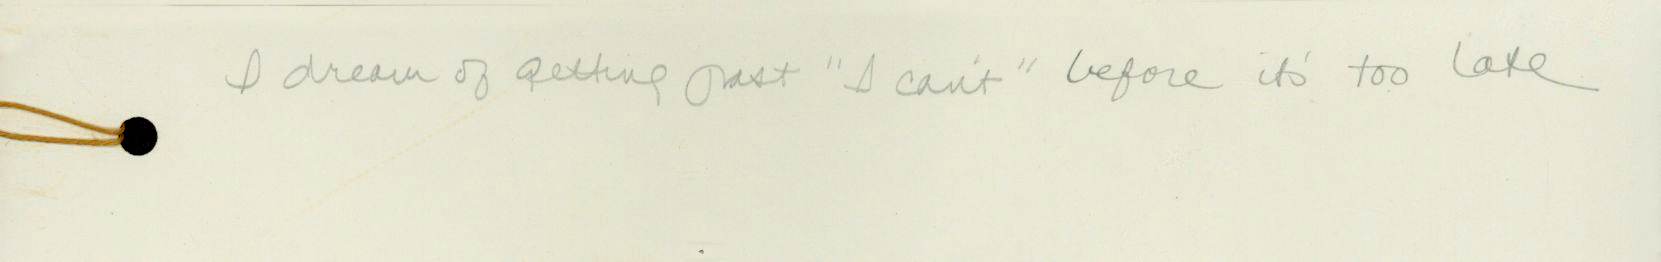 I dream of getting past "I can't" before it's too late